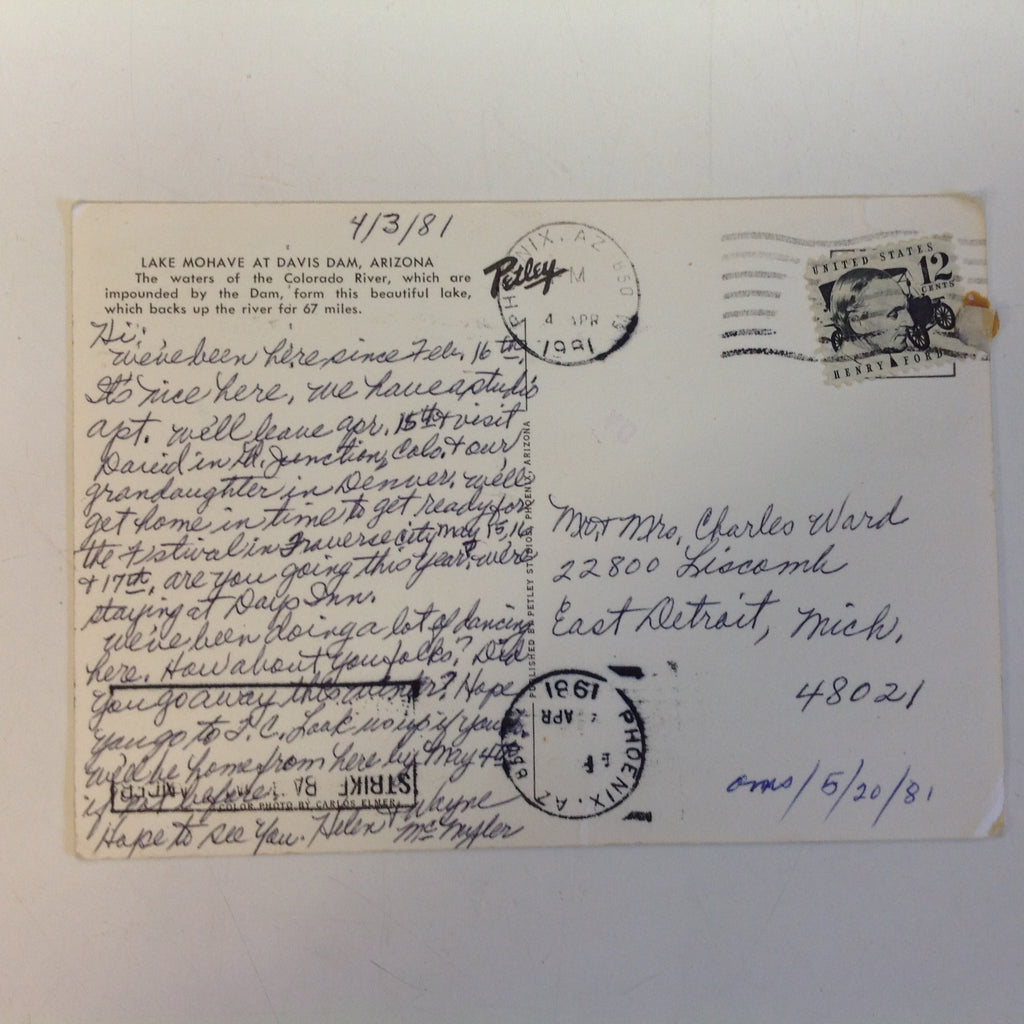 4/3/81
LAKE MOHAVE AT DAVIS DAM, ARIZONA
The waters of the Colorado River, which are
impounded by the Dam, form this beautiful lake,
which backs up the river for 67 miles.
Hi,
we've been here since Feb. 16th
It's nice here, we have a studio
apt. we'll leave apr. 15th + visit
David in Gd. Junction, Colo. + our
grandaughter in Denver. we'll
get home in time to get ready for
the Festival in Traverse city May 15, 16
+ 17th, are you going this year? we're
staying at Days Inn.
we've been doing a lot of dancing
here. How about you folks? Did
you go away this winter? Hope
you go to T.C. Look us up if you
we'll be home from here by May 4th
if not before.
Hope to see you. Helen + Wayne
Mc Myler
STRIKE BA
CANCER
COLOR PHOTO BY CARLOS ELMER
Petley
PUBLISHED BY PETLEY STUDIOS, PHOENIX, ARIZONA
PHOENIX, AZ 850
PM
4 APR
1981
UNITED STATES
12
CENTS
HENRY FORD
Mr. + Mrs. Charles Ward
22800 Liscomb
East Detroit, Mich.
48021
PHOENIX, AZ 850
APR
1981
ans/5/20/81